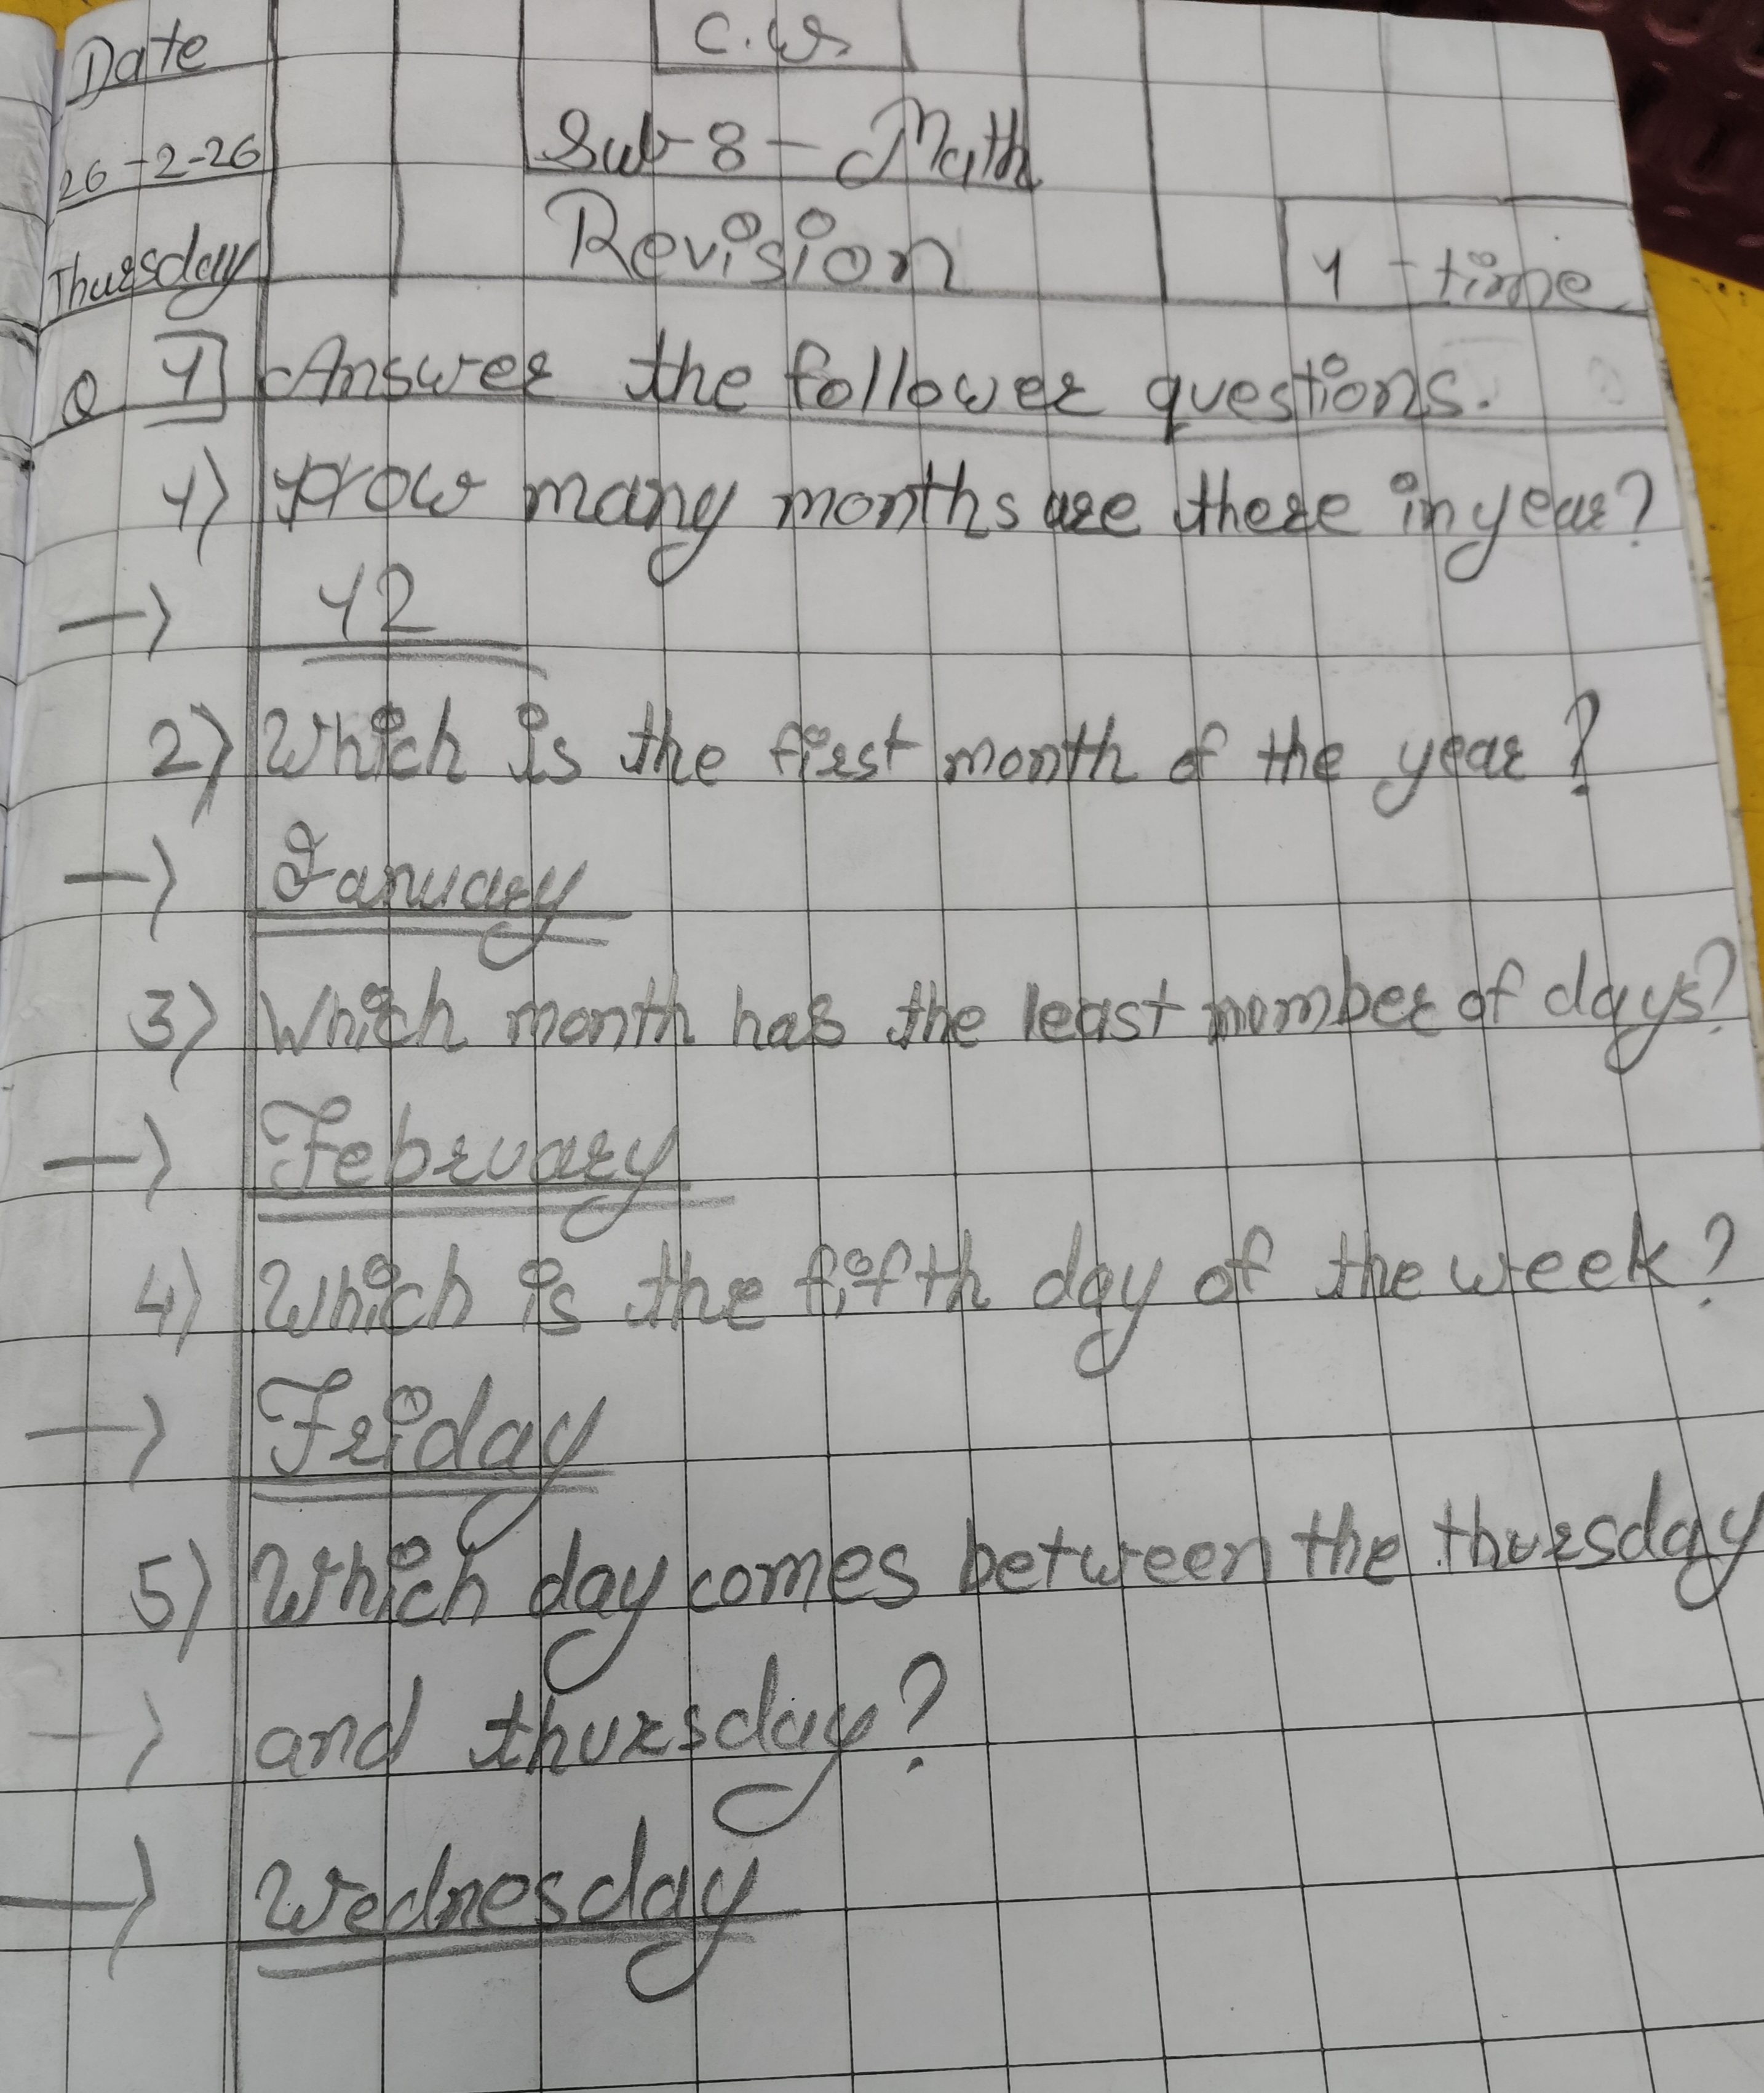 Date
C.W.
26-2-26
Sub-8-Math
Thursday
Revision
1 - time
Q 1] Answer the follower questions.
1) How many months are there in year?
→ 12
2) Which is the first month of the year?
→ January
3) Which month has the least number of days?
→ February
4) Which is the fifth day of the week?
→ Friday
5) Which day comes between the thursday
→ and thursday?
→ Wednesday